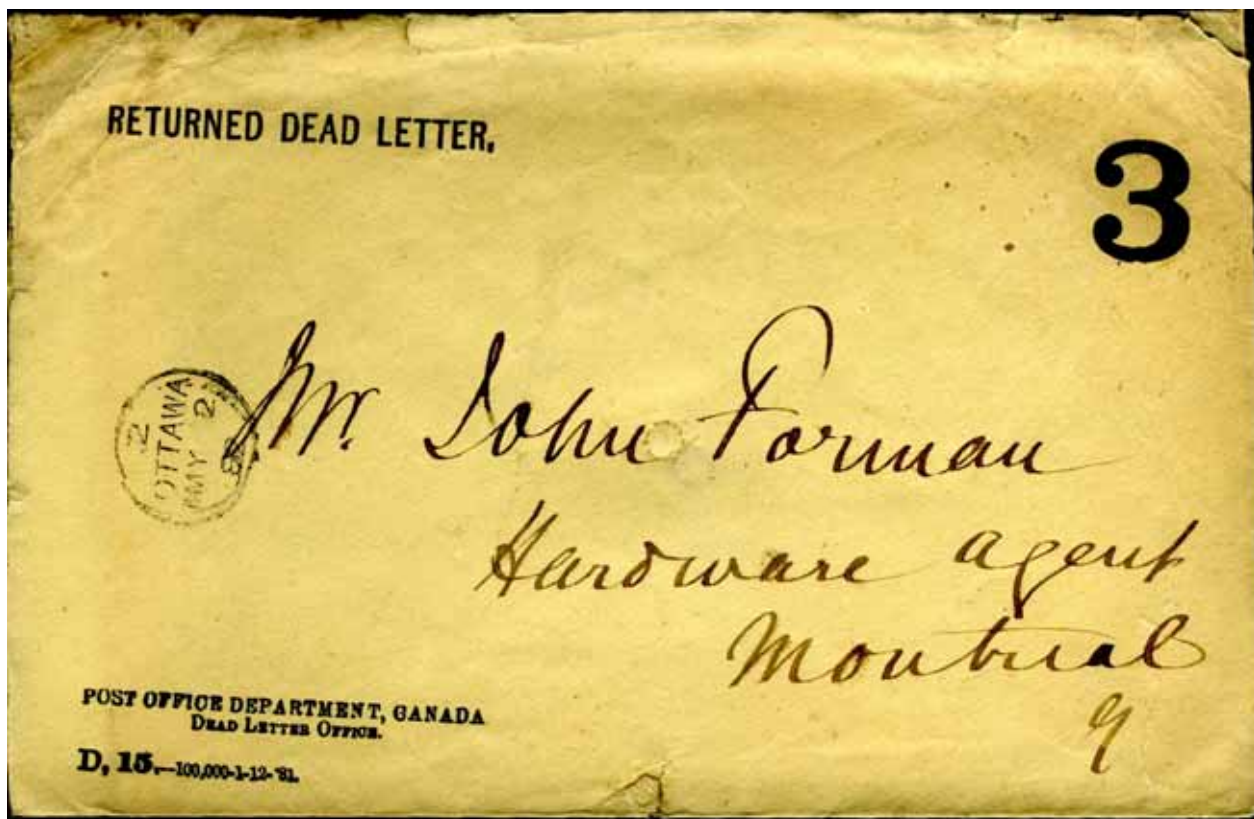 RETURNED DEAD LETTER.
3
2
OTTAWA
MY 2
Mr. John Forman
Hardware agent
Montreal
POST OFFICE DEPARTMENT, CANADA
DEAD LETTER OFFICE.
D, 15.—100,000-1-12-'81.